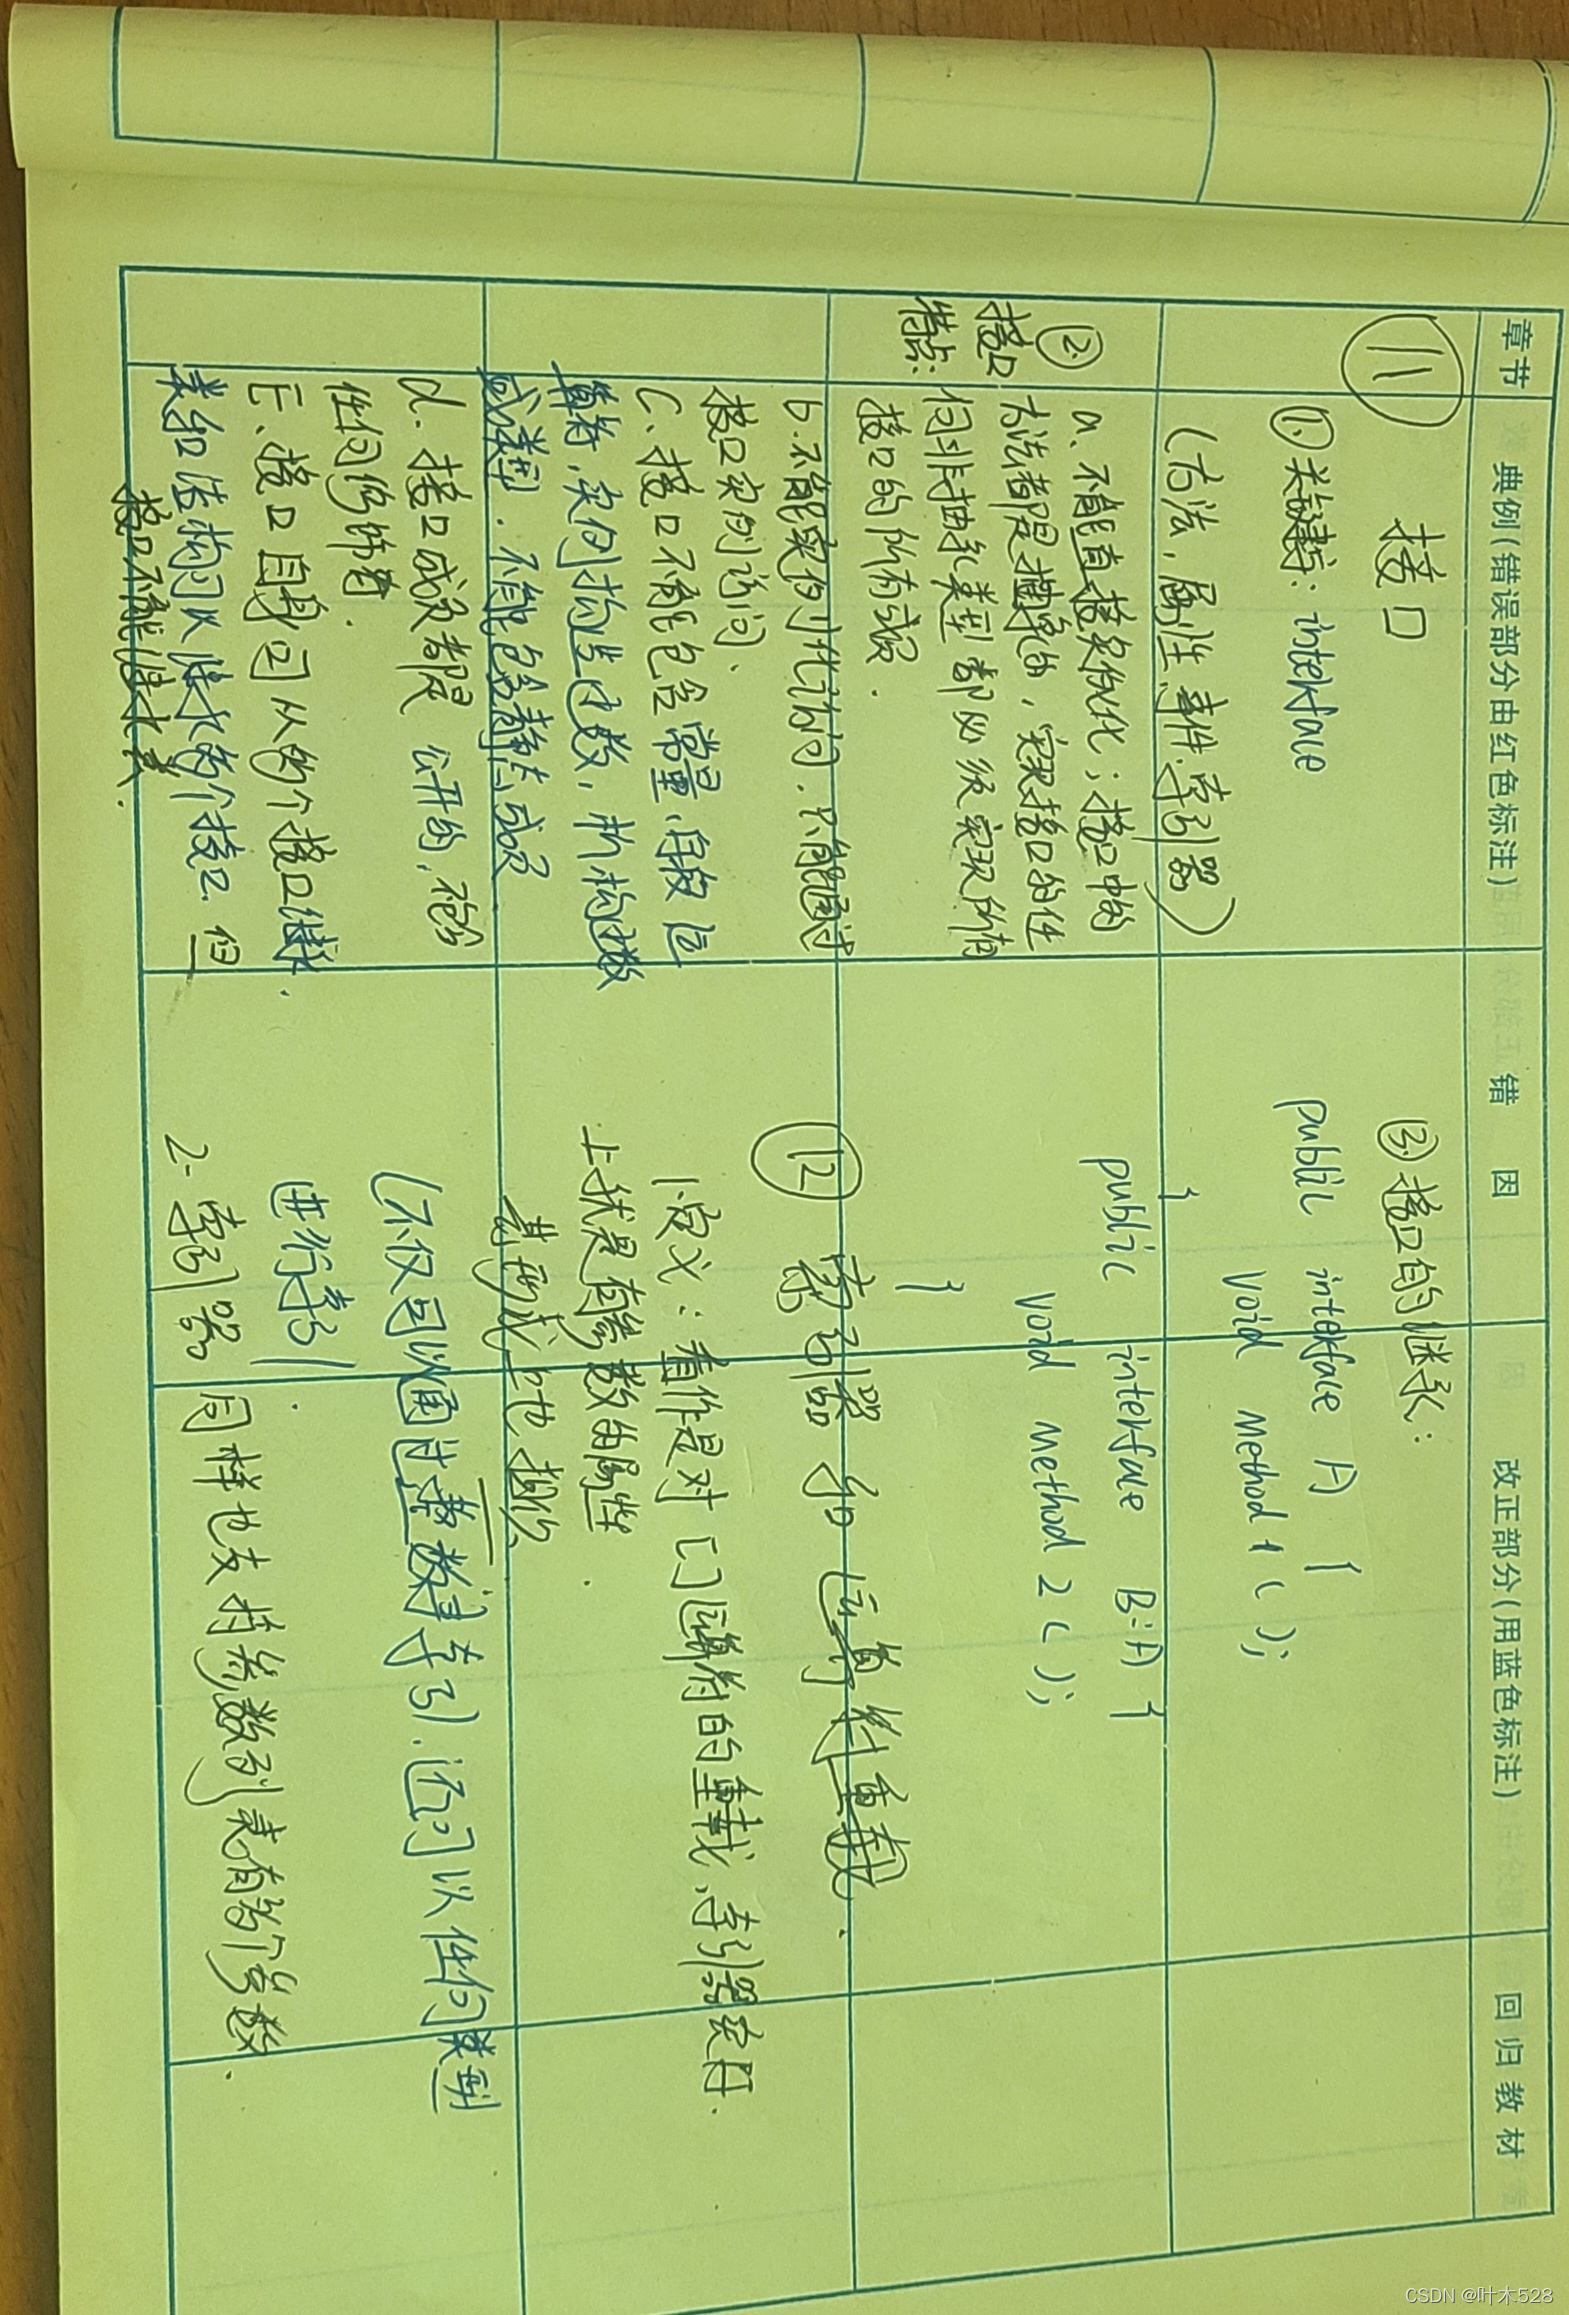 章节 典例(错误部分由红色标注) 错因 改正部分(用蓝色标注) 回归教材
11 接口
①关键字: interface
(方法,属性、事件、索引器)
② 接口特点:
a、不能直接实例化;接口中的
方法都是抽象的,实现接口的任
何非抽象类型都必须实现所有
接口的所有成员.
b.不能实例化访问,只能通过
接口实例访问、
C、接口不能包含常量,字段,运
算符,实例构造函数,析构函数
或类型.不能包含静态成员
d.接口成员都是公开的,
任何修饰符.
E、接口自身可从多个接口继承.
类和结构可以继承多个接口.但
接口不能继承类.
③.接口的继承:
public interface A {
void method 1 ( );
}
public interface B:A {
void method 2 ( );
}
12 索引器和运算符重载.
1、定义:看作是对[]运算符的重载,索引器实质
上就是有参数的属性.
(不仅可以通过整数索引.还可以任何类型
进行索引.
2-索引器同样也支持参数列表有多个参数.
CSDN @叶木528